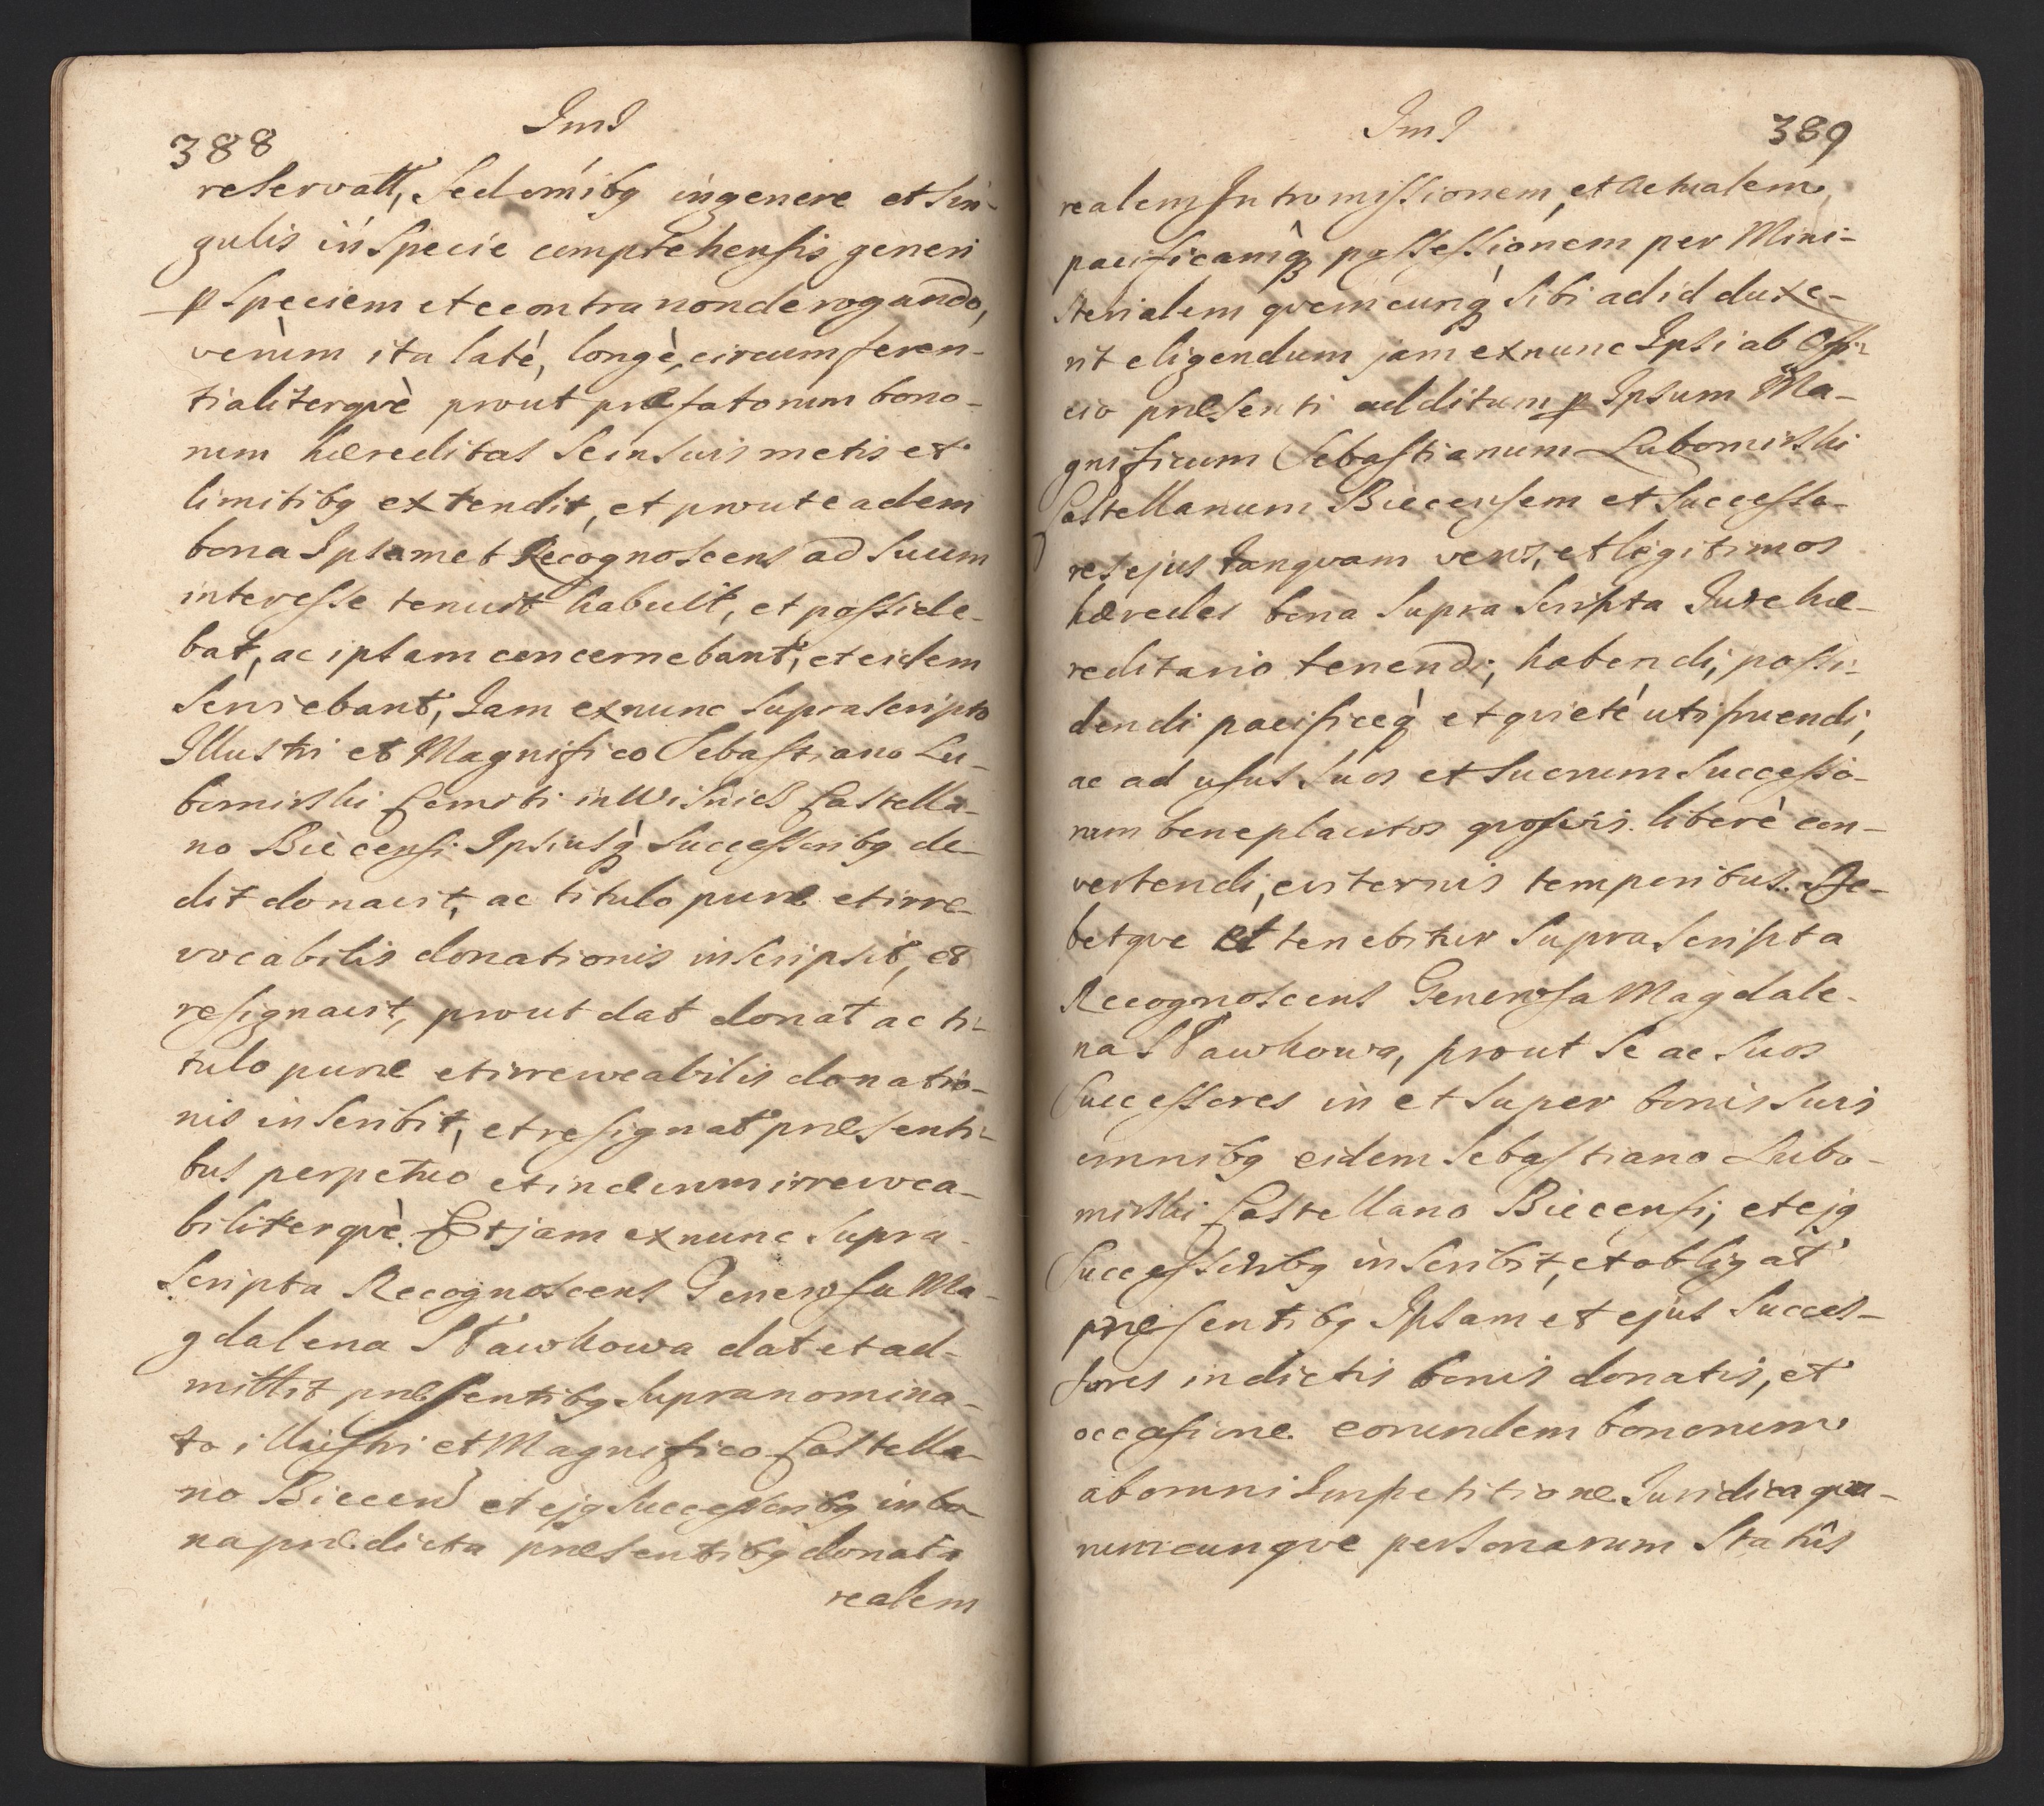 388
ImS
reservatt, sed omibg ingenere et sin-
gulis in specie comprehensis generi
p speciem et econtra non derogando,
verùm ita latè, longè, circumferen-
tialiterqvè prout præfatorum bono-
rum hæreditas se in suis metis et
limitibg extendit, et prout eadem
bona Ipsamet Recognoscens ad suum
interesse tenuit habuit, et posside-
bat, ac ipsam concernebant, et eidem
serviebant, Jam exnunc suprascripto
Illustri et Magnifico Sebastiano Lu-
bomirski Comiti in Wisnicz Castella-
no Biecensi Ipsiusq̀ Successoribg de-
dit donavit, ac titulo puræ et irre-
vocabilis donationis inscripsit, et
resignavit, prout dat donat ac ti-
tulo puræ et irrevocabilis donatio-
nis inscribit, et resignat præsenti-
bus perpetuò et in ævum irrevoca-
biliterqvè. Et jam exnunc supra-
scripta Recognoscens Generosa Ma-
gdalena Sławkowa dat et ad-
mittit præsentibg supranomina-
to illustri et Magnifico Castella-
no Biecens et ejg Successoribg in bo-
na prædicta præsentibg donata
realem
ImS
389
realem Intromissionem, et Actualem,
pacificamq̀ possessionem per Mini-
sterialem qvemcunq̀ sibi ad id duxe-
rit eligendum jam exnunc Ipsi ab Offi-
cio præsenti additum p Ipsum Ma-
gnificum Sebastianum Lubomirski
Castellanum Biecensem et Successo-
res ejus tanqvam veros, et legitimos
hæredes bona supra scripta Jure hæ-
reditario tenendi, habendi, possi-
dendi pacificeq̀ et qvietè utifruendi,
ac ad usus suos et suorum Successo-
rum beneplacitos qvosvis liberè con-
vertendi, æviternis temporibus. De-
betqve et tenebitur supra scripta
Recognoscens Generosa Magdale-
na Sławkowa, prout se ac suos
Successores in et super bonis suis
omnibg eidem Sebastiano Lubo-
mirski Castellano Biecensi, et ejg
Successoribg inscribit, et obligat
præsentibg Ipsam et ejus Succes-
sores in dictis bonis donatis, et
occasione eorundem bonorum
ab omni Impetitione Juridica qvo-
rumcunqve personarum Statûs